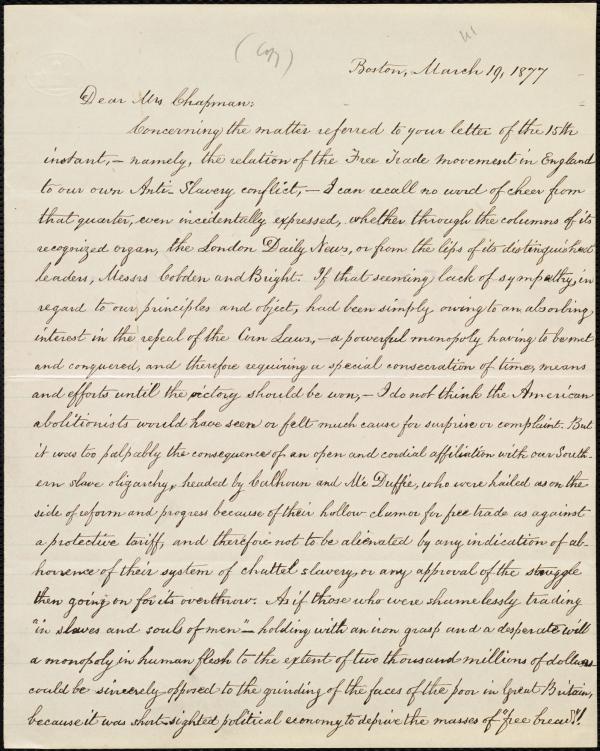 (Copy)
Boston, March 19, 1877
Dear Mrs Chapman:
Concerning the matter referred to your letter of the 15th
instant, – namely, the relation of the Free Trade movement in England
to our own Anti-Slavery conflict, – I can recall no word of cheer from
that quarter, even incidentally expressed, whether through the columns of its
recognized organ, the London Daily News, or from the lips of its distinguished
leaders, Messrs Cobden and Bright. If that seeming lack of sympathy, in
regard to our principles and object, had been simply owing to an absorbing
interest in the repeal of the Corn Laws, – a powerful monopoly having to be met
and conquered, and therefore requiring a special consecration of time, means
and efforts until the victory should be won, – I do not think the American
abolitionists would have seen or felt much cause for surprise or complaint. But
it was too palpably the consequence of an open and cordial affiliation with our South-
ern slave oligarchy, headed by Calhoun and Mc Duffie, who were hailed as on the
side of reform and progress because of their hollow clamor for free trade as against
a protective tariff, and therefore not to be alienated by any indication of ab-
horrence of their system of chattel slavery, or any approval of the struggle
then going on for its overthrow. As if those who were shamelessly trading
"in slaves and souls of men" – holding with an iron grasp and a desperate will
a monopoly in human flesh to the extent of two thousand millions of dollars
could be sincerely opposed to the grinding of the faces of the poor in Great Britain,
because it was short-sighted political economy to deprive the masses of "free bread"!